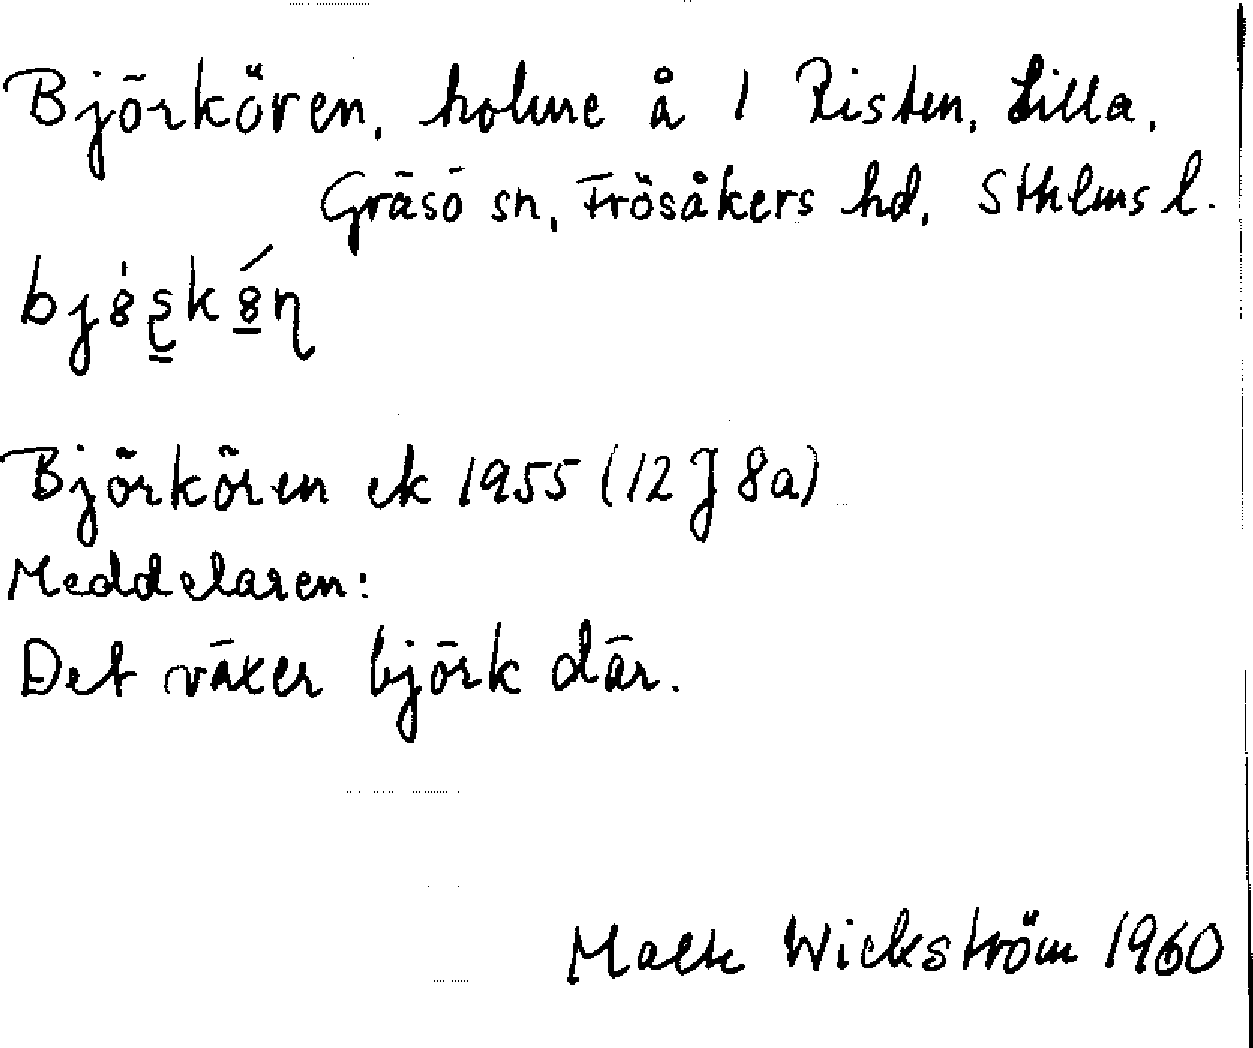 Björkören, holme å 1 Risten, Lilla,
Gräsö sn, Frösåkers hd, Sthlms l.
Björkören ek 1955 (12 J 8a)
Meddelaren:
Det växer björk där.
Malte Wickström 1960